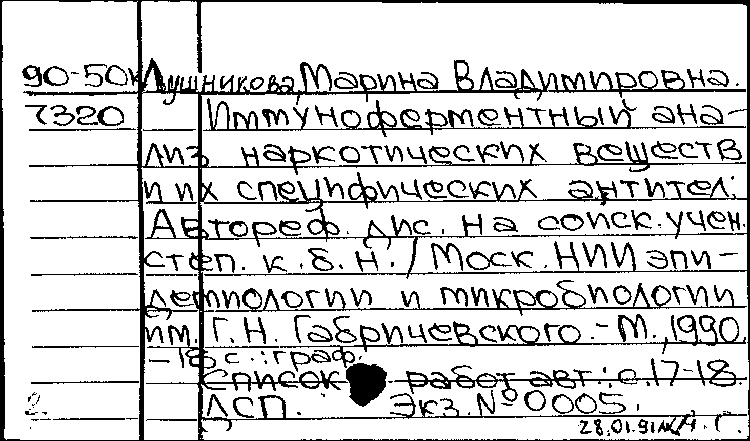 90-50к Лушникова, Марина Владимировна.
7320 Иммуноферментный ана-
лиз наркотических веществ
и их специфических антител:
Автореф. дис. на соиск. учен.
степ. к. б. н. / Моск. НИИ эпи-
демиологии и микробиологии
им. Г. Н. Габричевского. - М., 1990.
- 18 с. : граф.
Список работ авт.: с. 17-18.
2. ДСП. Экз. № 0005.
28.01.91